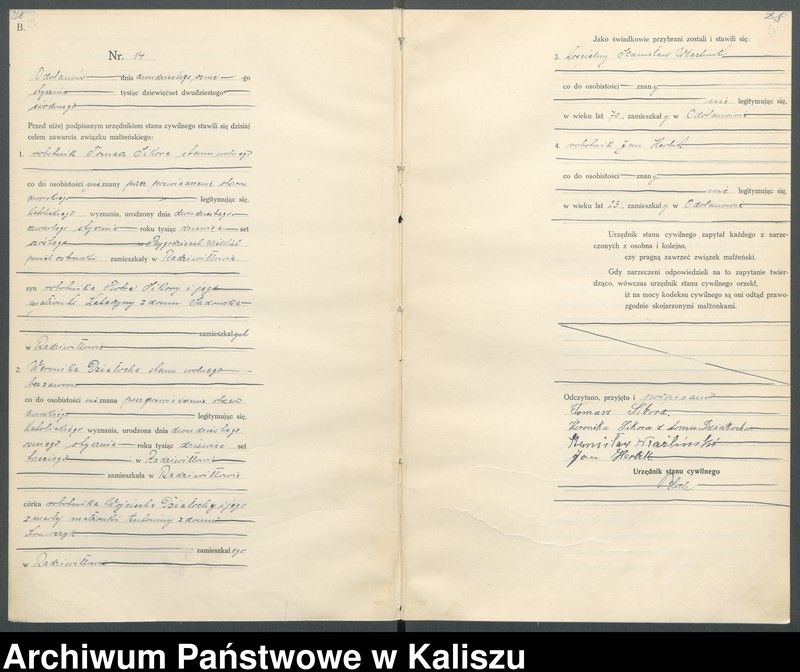 B.
Nr. 14
Odolanów dnia dwudziestego ósme go
stycznia tysiąc dziewięćset dwudziestego
siódmego
Przed niżej podpisanym urzędnikiem stanu cywilnego stawili się dzisiaj
celem zawarcia związku małżeńskiego:
1. robotnik Tomasz Sikora stanu wolnego
co do osobistości nieznany przez
legitymując się,
katolickiego wyznania, urodzony dnia dwudziestego
czwartego stycznia roku tysiąc dziewięć set
w Przygodzicach Wielkich
powiat ostrowski zamieszkały w Radziwiłłowie
syn robotnika Piotra Sikory i jego
małżonki Katarzyny z domu
zamieszkałych
w Radziwiłłowie
2. Weronika Działocha stanu wolnego
bez zawodu
co do osobistości nieznana
legitymując się,
katolickiego wyznania, urodzona dnia dwudziestego
stycznia roku tysiąc dziewięć set
trzeciego w Radziwiłłowie
zamieszkała w Radziwiłłowie
córka robotnika Wojciecha Działochy i jego
zmarłej małżonki Antoniny z domu
Krawczyk
zamieszkałego
w Radziwiłłowie
Jako świadkowie przybrani zostali i stawili się:
3. kościelny Stanisław
co do osobistości znany
nie legitymując się,
w wieku lat 70, zamieszkały w Odolanowie
4. robotnik Jan
co do osobistości znany
nie legitymując się,
w wieku lat 23, zamieszkały w Odolanowie
Urzędnik stanu cywilnego zapytał każdego z narze-
czonych z osobna i kolejno,
czy pragną zawrzeć związek małżeński.
Gdy narzeczeni odpowiedzieli na to zapytanie twier-
dząco, wówczas urzędnik stanu cywilnego orzekł,
iż na mocy kodeksu cywilnego są oni odtąd prawo-
zgodnie skojarzonymi małżonkami.
Odczytano, przyjęto i podpisano
Tomasz Sikora
Weronika Sikora z domu Działocha
Stanisław
Jan
Urzędnik stanu cywilnego
Archiwum Państwowe w Kaliszu